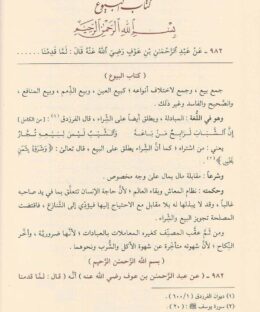 كتاب البيوع
بسم الله الرحمن الرحيم
٩٨٢ - عَنْ عَبْدِ الرَّحْمَنِ بْنِ عَوْفٍ رَضِيَ اللهُ عَنْهُ قَالَ: لَمَّا قَدِمْنَا ......
( كتاب البيوع )
جمع بيع ، وجمع لاختلاف أنواعه ؛ كبيع العين ، وبيع الذِّمم ، وبيع المنافع ،
والصَّحيح والفاسد وغير ذلك .
وهو في اللُّغة : المبادلة ، ويطلق أيضاً على الشِّراء ، قال الفرزدق(١) : [من الكامل]
إِنَّ الشَّبَابَ لَرَابِحٌ مَنْ بَاعَهُ وَالشَّيْبُ لَيْسَ لِبَيْعِهِ تُجَّارُ
يعني : من اشتراه ؛ كما أن الشِّراء يطلق على البيع ، قال تعالى : ﴿ وَشَرَوْهُ بِثَمَنٍ
بَخْسٍ ﴾(٢) .
وشرعاً : مقابلة مال بمال على وجه مخصوص .
وحكمته : نظام المعاش وبقاء العالم ؛ لأنَّ حاجة الإنسان تتعلَّق بما في يد صاحبه
غالباً ، وقد لا يبذلها له بلا مقابل مع الاحتياج إليها فيؤدِّي إلى التَّنازع ، فاقتضت
المصلحة تجويز البيع والشِّراء .
ومن ثَمَّ عقَّب المصنِّف كغيره المعاملات بالعبادات ؛ لأنَّها ضروريَّة ، وأخَّر
النِّكاح ؛ لأنَّ شهوته متأخِّرة عن شهوة الأكل والشُّرب ونحوهما .
بسم الله الرَّحمن الرَّحيم )
٩٨٢ - ( عن عبد الرَّحمن بن عوف رضي الله عنه ) أنَّه ( قال : لمَّا قدمنا
(١) ديوان الفرزدق ( ١٠٠/١ ) .
(٢) سورة يوسف : ( ٢٠ ) .